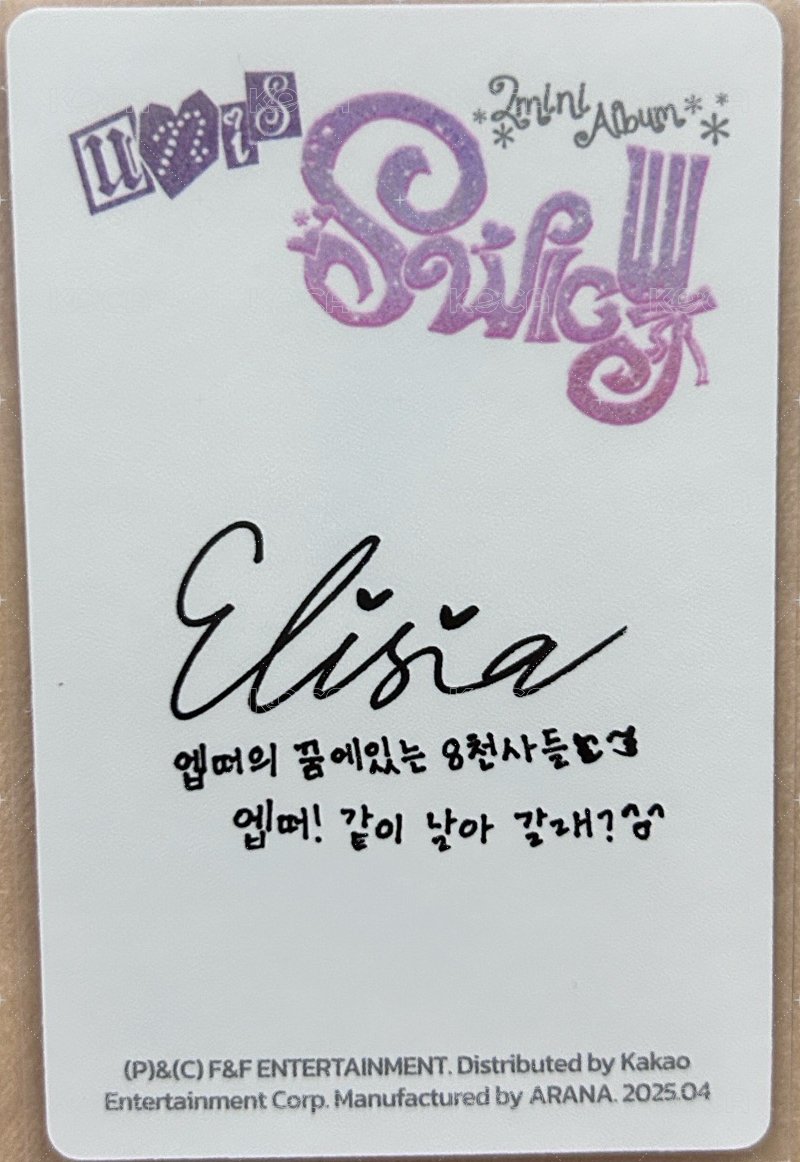 unis
2mini Album
Swicy
Elisia
엡떠의 꿈에있는 8천사들
엡떠! 같이 날아 갈래?^^
(P)&(C) F&F ENTERTAINMENT. Distributed by Kakao
Entertainment Corp. Manufactured by ARANA. 2025.04